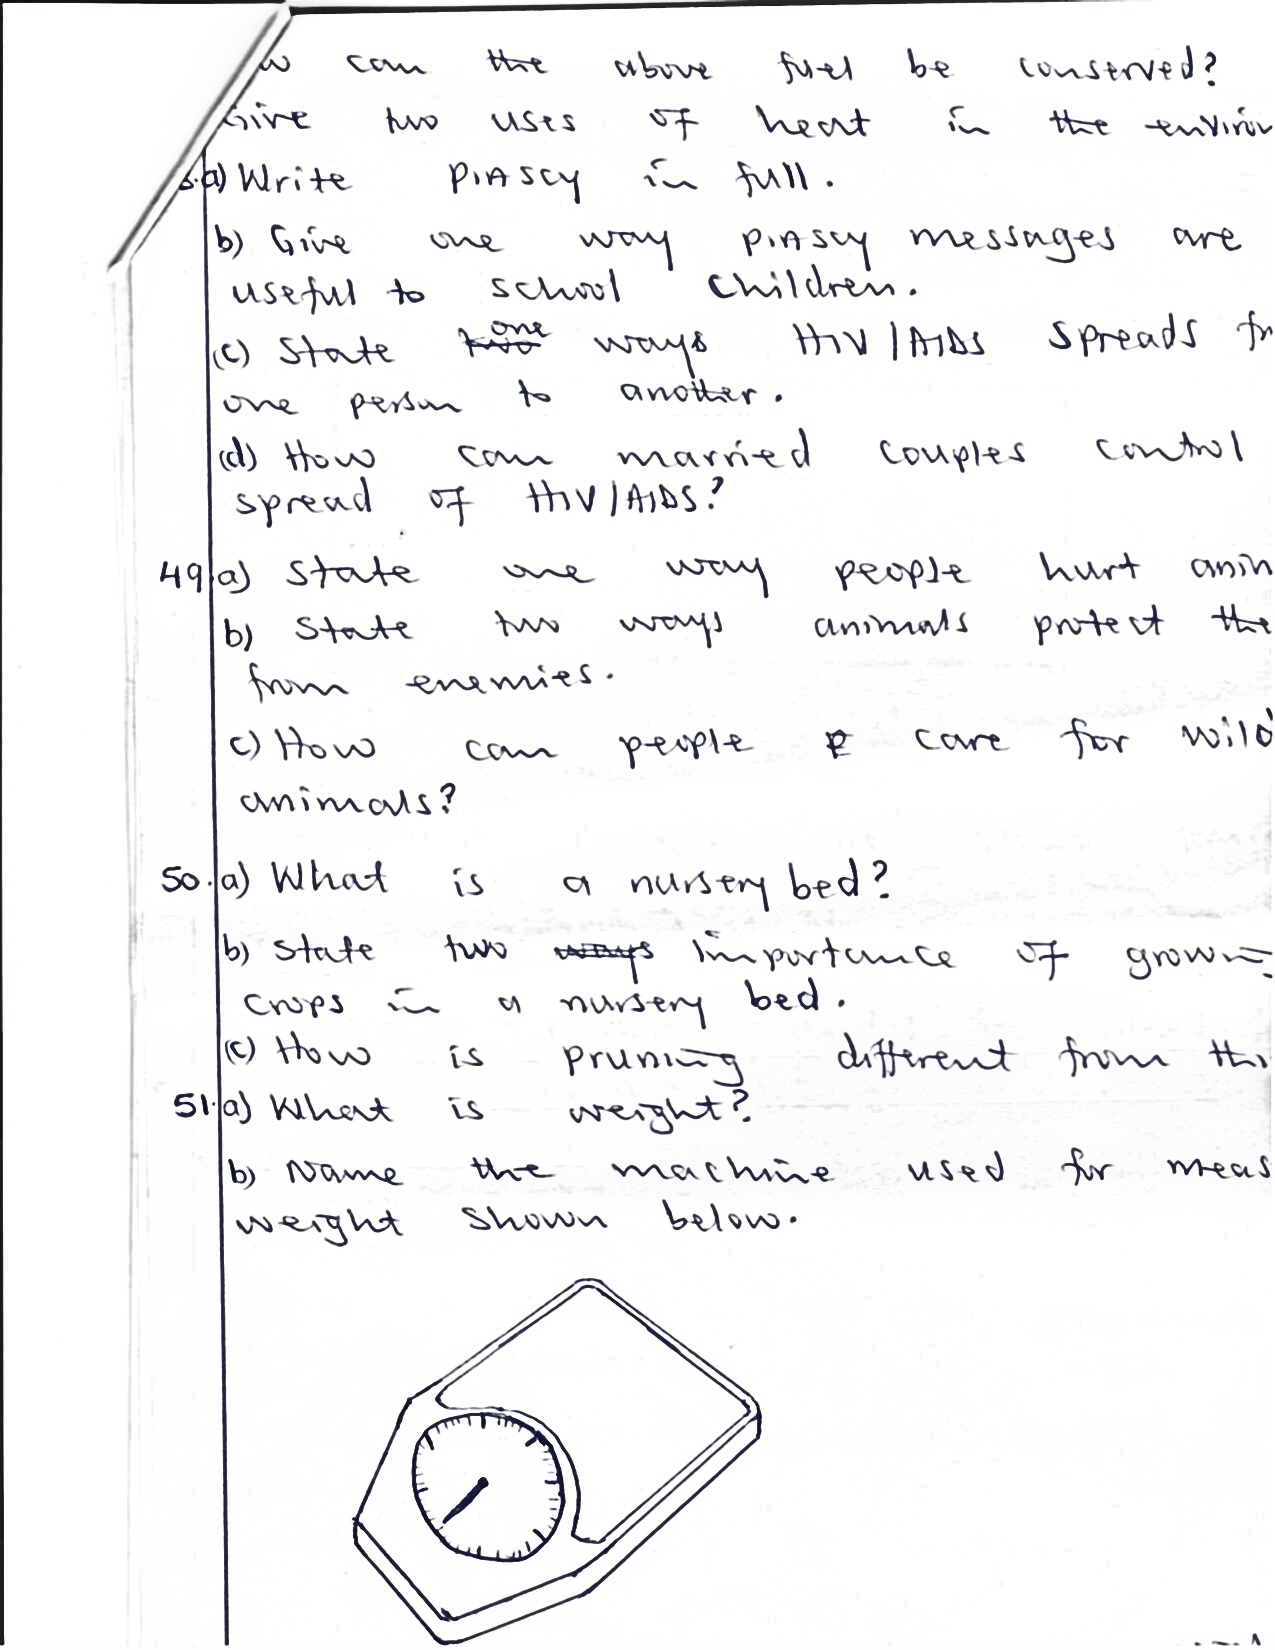 can the above fuel be conserved?
Give two uses of heat in the
a) Write PIASCY in full.
b) Give one way PIASCY messages are
useful to school children.
(c) State one ways HIV/AIDS spreads
one person to another.
(d) How can married couples control
spread of HIV/AIDS?
49. a) State one way people hurt
b) State two ways animals protect
from enemies.
c) How can people care for wild
animals?
50. a) What is a nursery bed?
b) State two importance of
crops in a nursery bed.
(c) How is pruning different from
51. a) What is weight?
b) Name the machine used for
weight shown below.